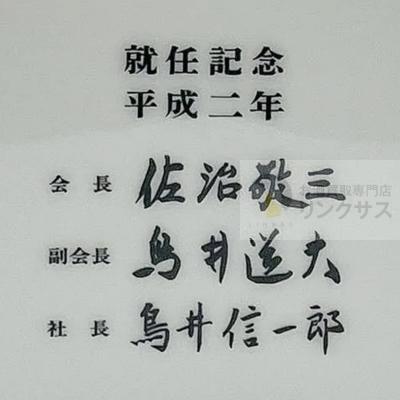 就任記念
平成二年
会長 佐治敬三
副会長 鳥井道夫
社長 鳥井信一郎
お酒買取専門店
リンクサス